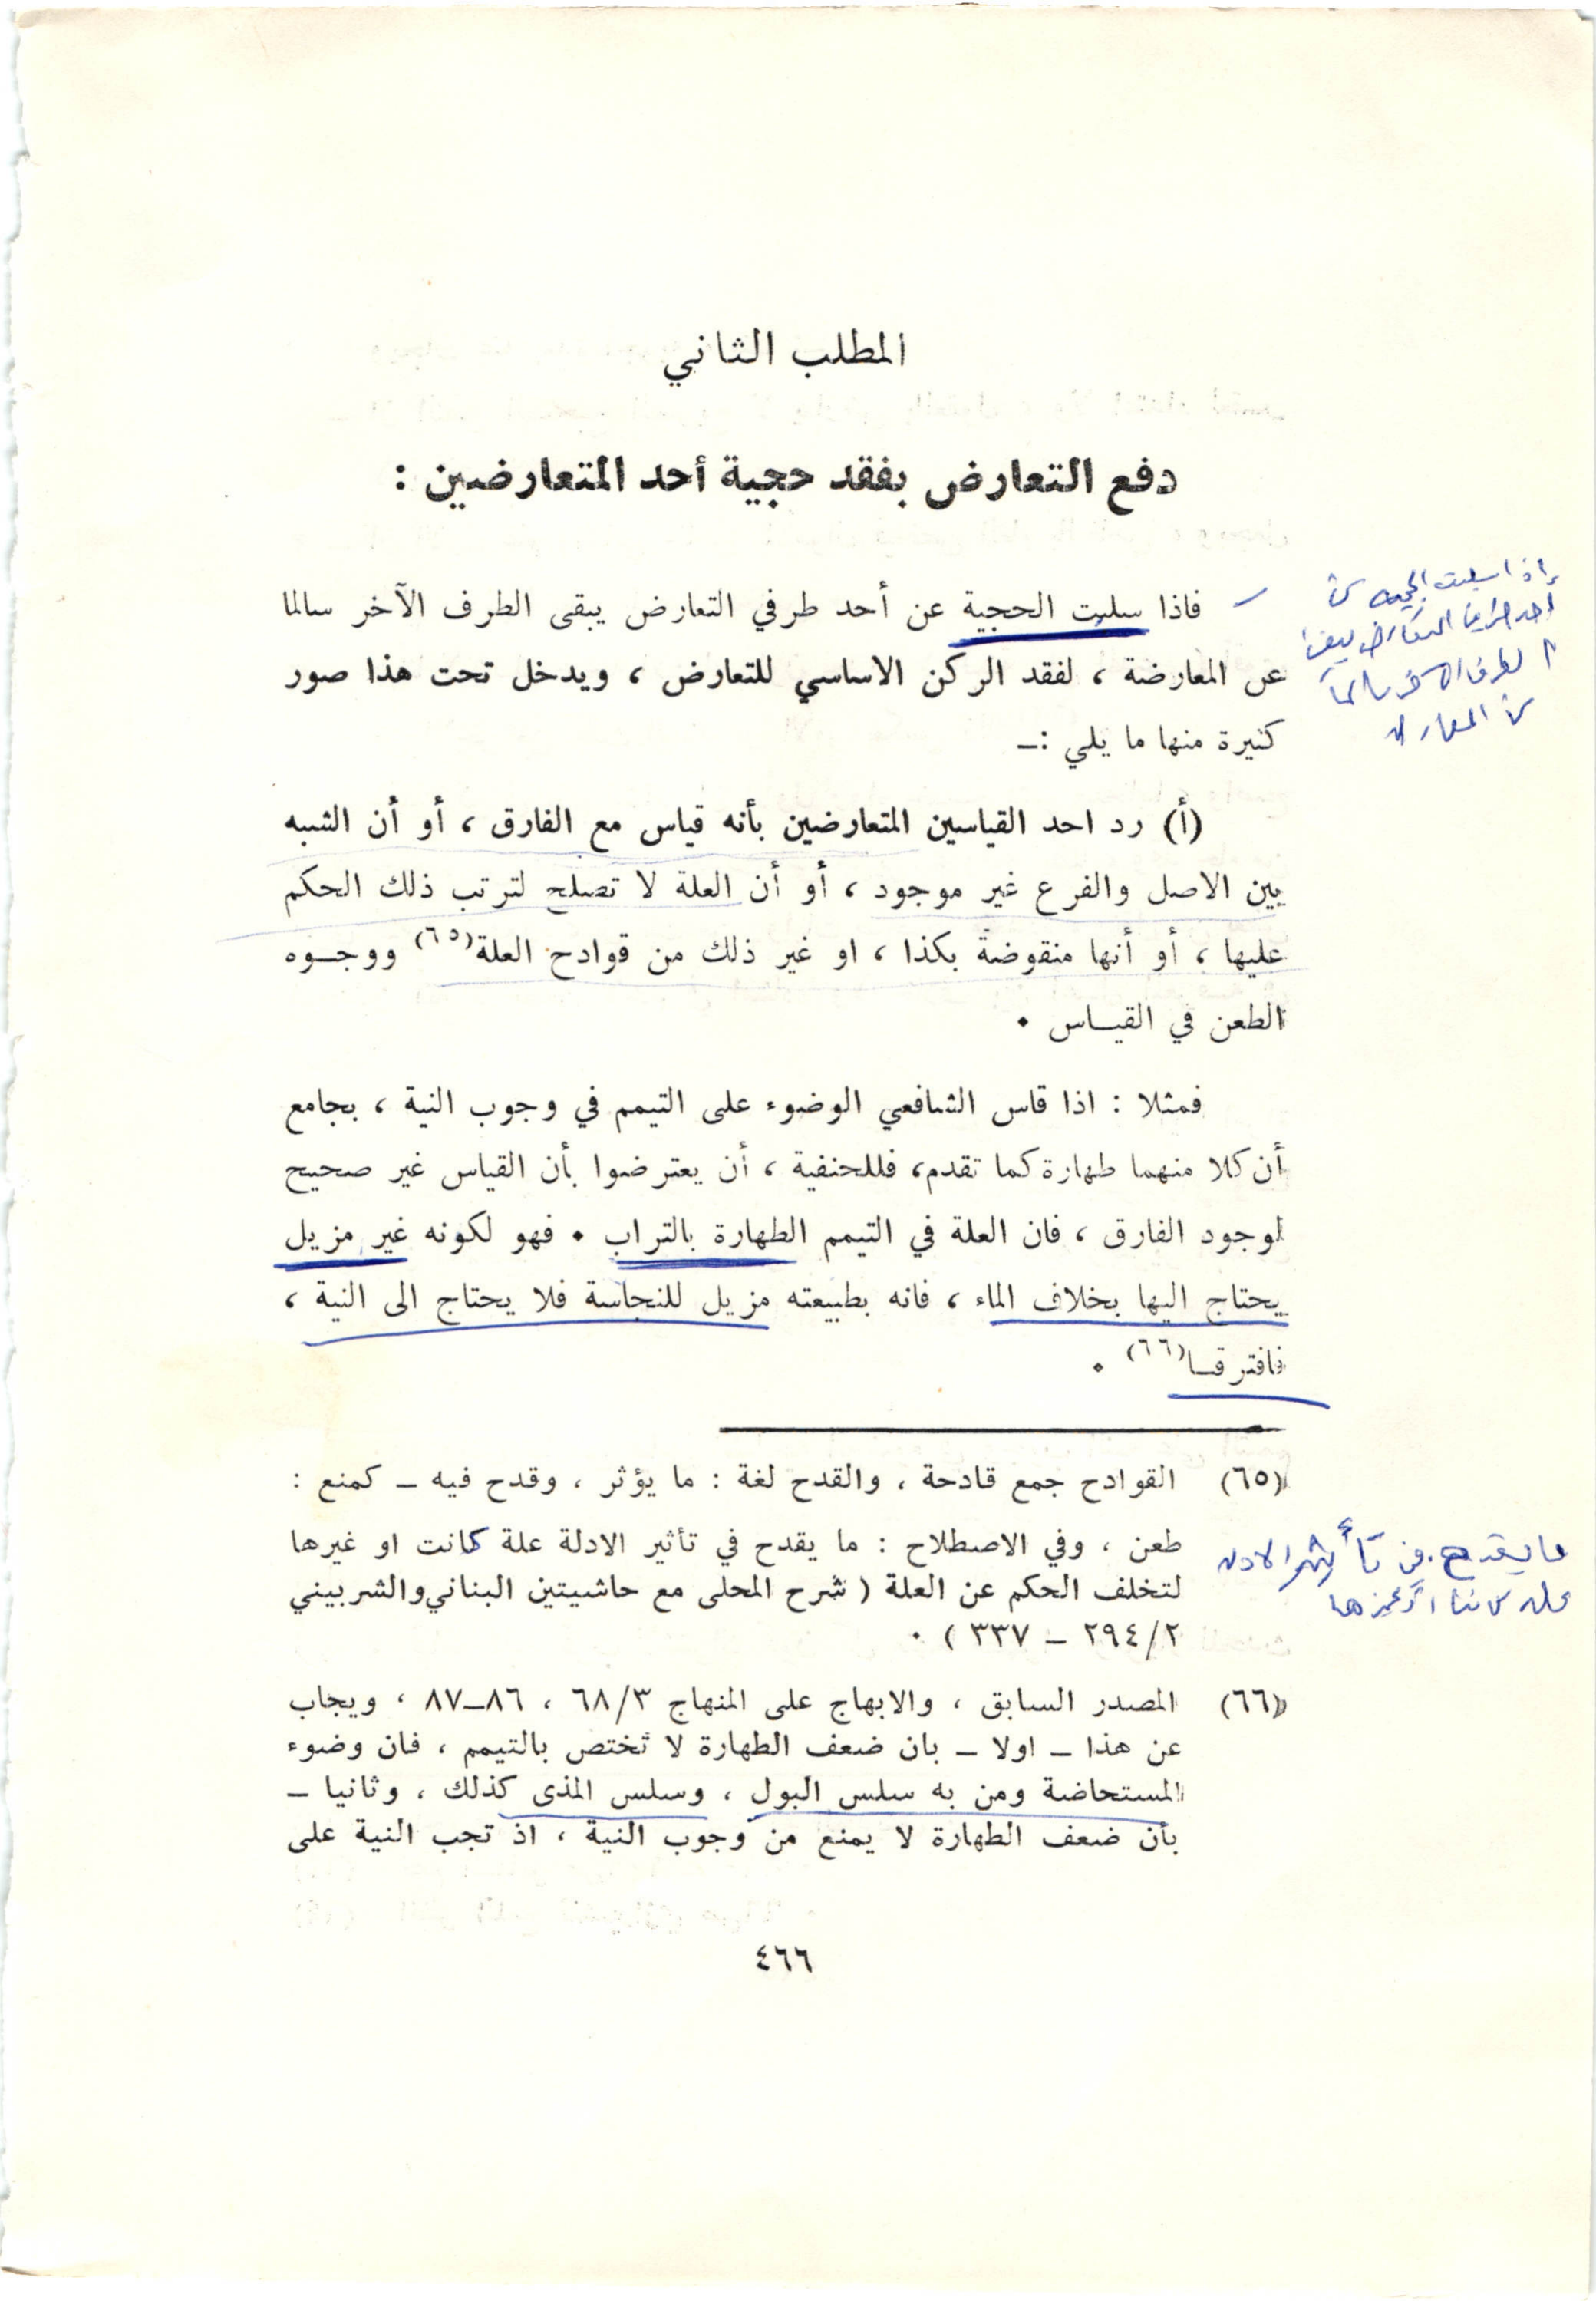 المطلب الثاني
دفع التعارض بفقد حجية أحد المتعارضين :
فاذا سلبت الحجية عن أحد طرفي التعارض يبقى الطرف الآخر سالما
عن المعارضة ، لفقد الركن الاساسي للتعارض ، ويدخل تحت هذا صور
كثيرة منها ما يلي :ـ
إذا سلبت الحجية عن
أحد طرفي التعارض يبقى
الطرف الآخر سالماً
عن المعارضة
(أ) رد احد القياسين المتعارضين بأنه قياس مع الفارق ، أو أن الشبه
بين الاصل والفرع غير موجود ، أو أن العلة لا تصلح لترتب ذلك الحكم
عليها ، أو أنها منقوضة بكذا ، او غير ذلك من قوادح العلة(٦٥) ووجـوه
الطعن في القيـاس .
فمثلا : اذا قاس الشافعي الوضوء على التيمم في وجوب النية ، بجامع
أن كلا منهما طهارة كما تقدم، فللحنفية ، أن يعترضوا بأن القياس غير صحيح
لوجود الفارق ، فان العلة في التيمم الطهارة بالتراب . فهو لكونه غير مزيل
يحتاج اليها بخلاف الماء ، فانه بطبيعته مزيل للنجاسة فلا يحتاج الى النية ،
فافترقـا(٦٦) .
(٦٥) القوادح جمع قادحة ، والقدح لغة : ما يؤثر ، وقدح فيه ـ كمنع :
طعن ، وفي الاصطلاح : ما يقدح في تأثير الادلة علة كانت او غيرها
لتخلف الحكم عن العلة ( شرح المحلى مع حاشيتين البناني والشربيني
٢/٢٩٤ ـ ٣٣٧ ) .
ما يقدح في تأثير الادلة
علة كانت أو غيرها
(٦٦) المصدر السابق ، والابهاج على المنهاج ٦٨/٣ ، ٨٦ـ٨٧ ، ويجاب
عن هذا ـ اولا ـ بان ضعف الطهارة لا تختص بالتيمم ، فان وضوء
المستحاضة ومن به سلس البول ، وسلس المذى كذلك ، وثانيا ـ
بأن ضعف الطهارة لا يمنع من وجوب النية ، اذ تجب النية على
٤٦٦